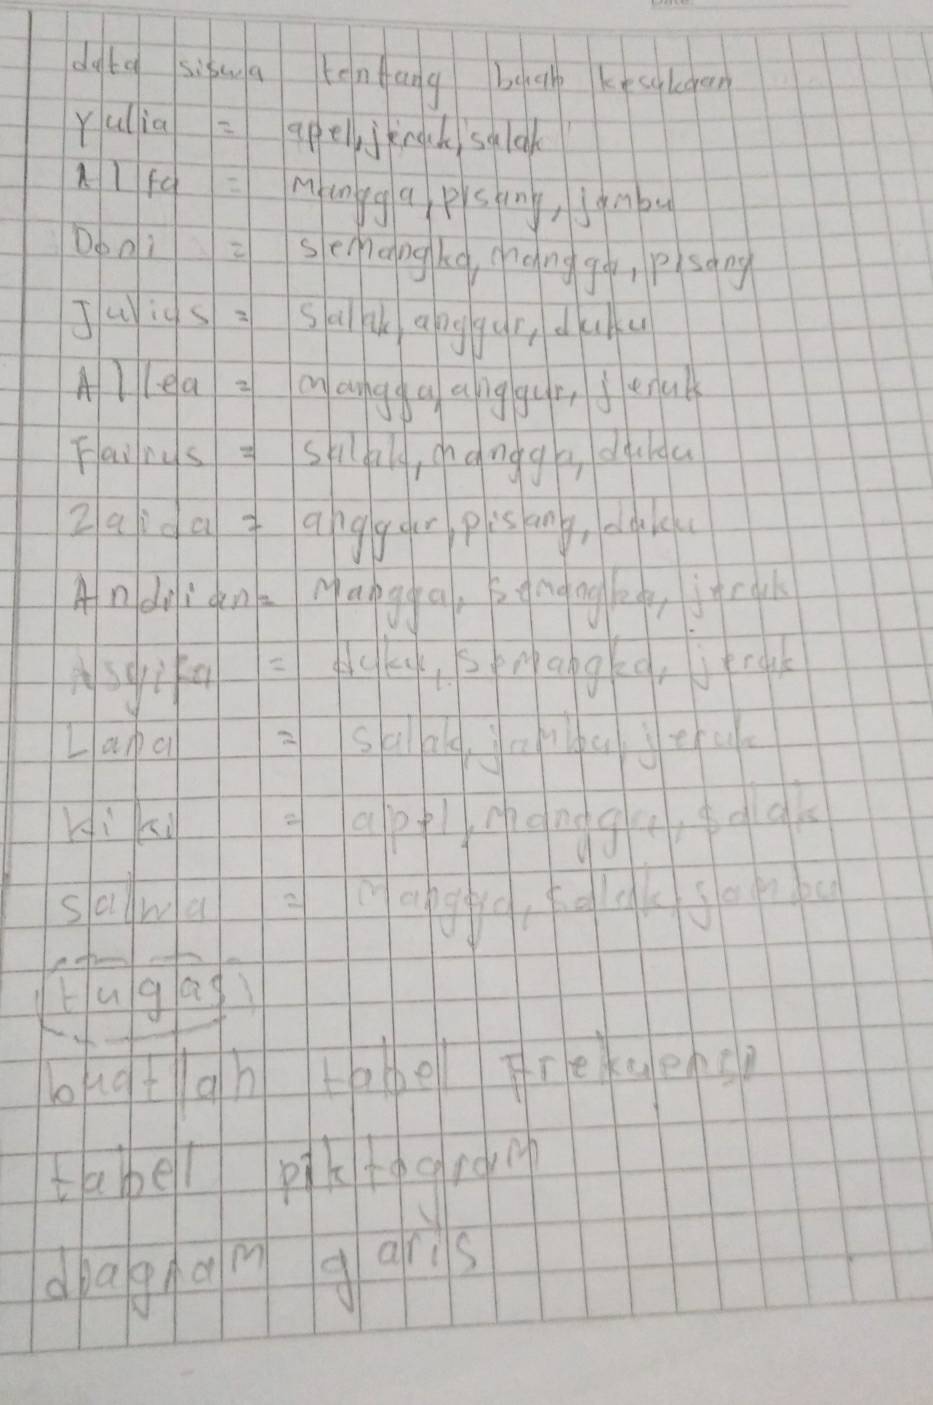 data siswa tentang buah kesukaan
Yulia = apel, jeruk, salak
Alfa = Mangga, pisang, jambu
Doni = semangka, mangga, pisang
Julius = Salak, anggur, duku
Allea = mangga, anggur, jeruk
Fairus = salak, mangga, duku
Zaida = anggur, pisang, duku
Andrian = Mangga, semangka, jeruk
Asyifa = duku, semangka, jeruk
Lana = salak, jambu, jeruk
kiki = apel, mangga, salak
salwa = mangga, salak, jambu
tugas
buatlah tabel frekuensi
tabel piktogram
diagram garis